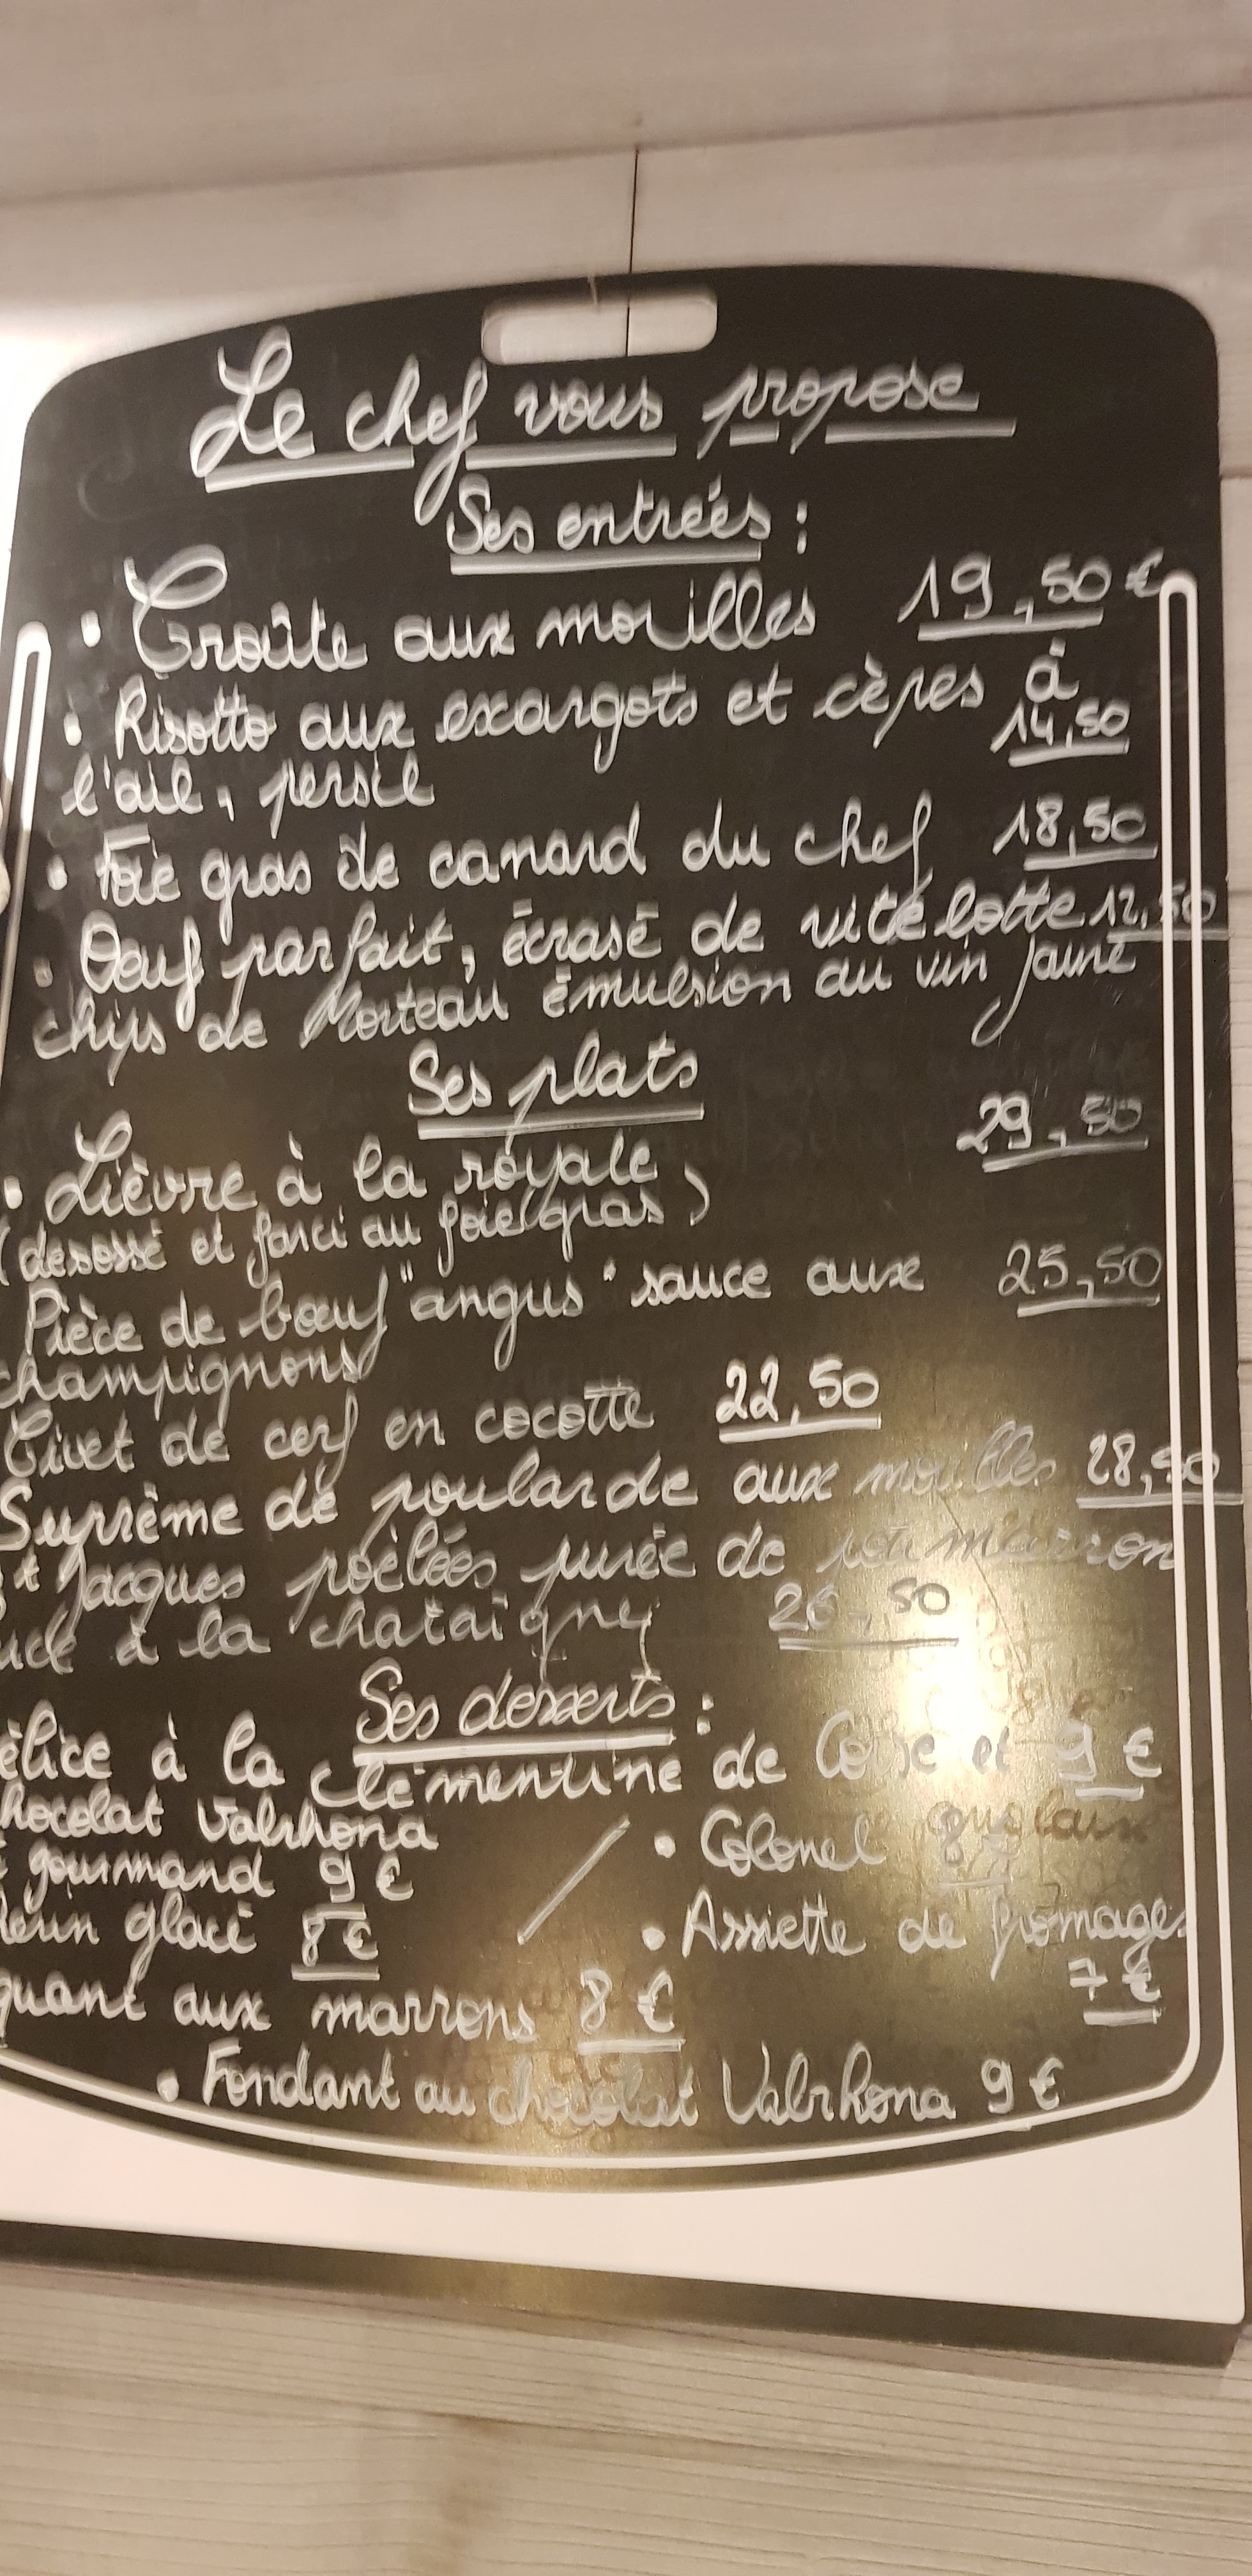 Le chef vous propose
Ses entrées :
• Croûte aux morilles 19,50 €
• Risotto aux escargots et cèpes à
l'ail, persil 14,50
• Foie gras de canard du chef 18,50
• Oeuf parfait, écrasé de vitelotte 12,50
chips de Morteau émulsion au vin jaune
Ses plats
• Lièvre à la royale 29,50
(desossé et farci au foie gras)
Pièce de boeuf "angus" sauce aux 25,50
champignons
Civet de cerf en cocotte 22,50
Suprême de poularde aux morilles 28,50
st Jacques poêlées purée de potimarron
à la chataigne 26,50
Ses desserts :
élice à la clémentine de Corse et 9 €
hocolat Valrhona
• Colonel 8
gourmand 9 €
glacé 8 €
• Assiette de fromages
7 €
quant aux marrons 8 €
• Fondant au chocolat Valrhona 9 €